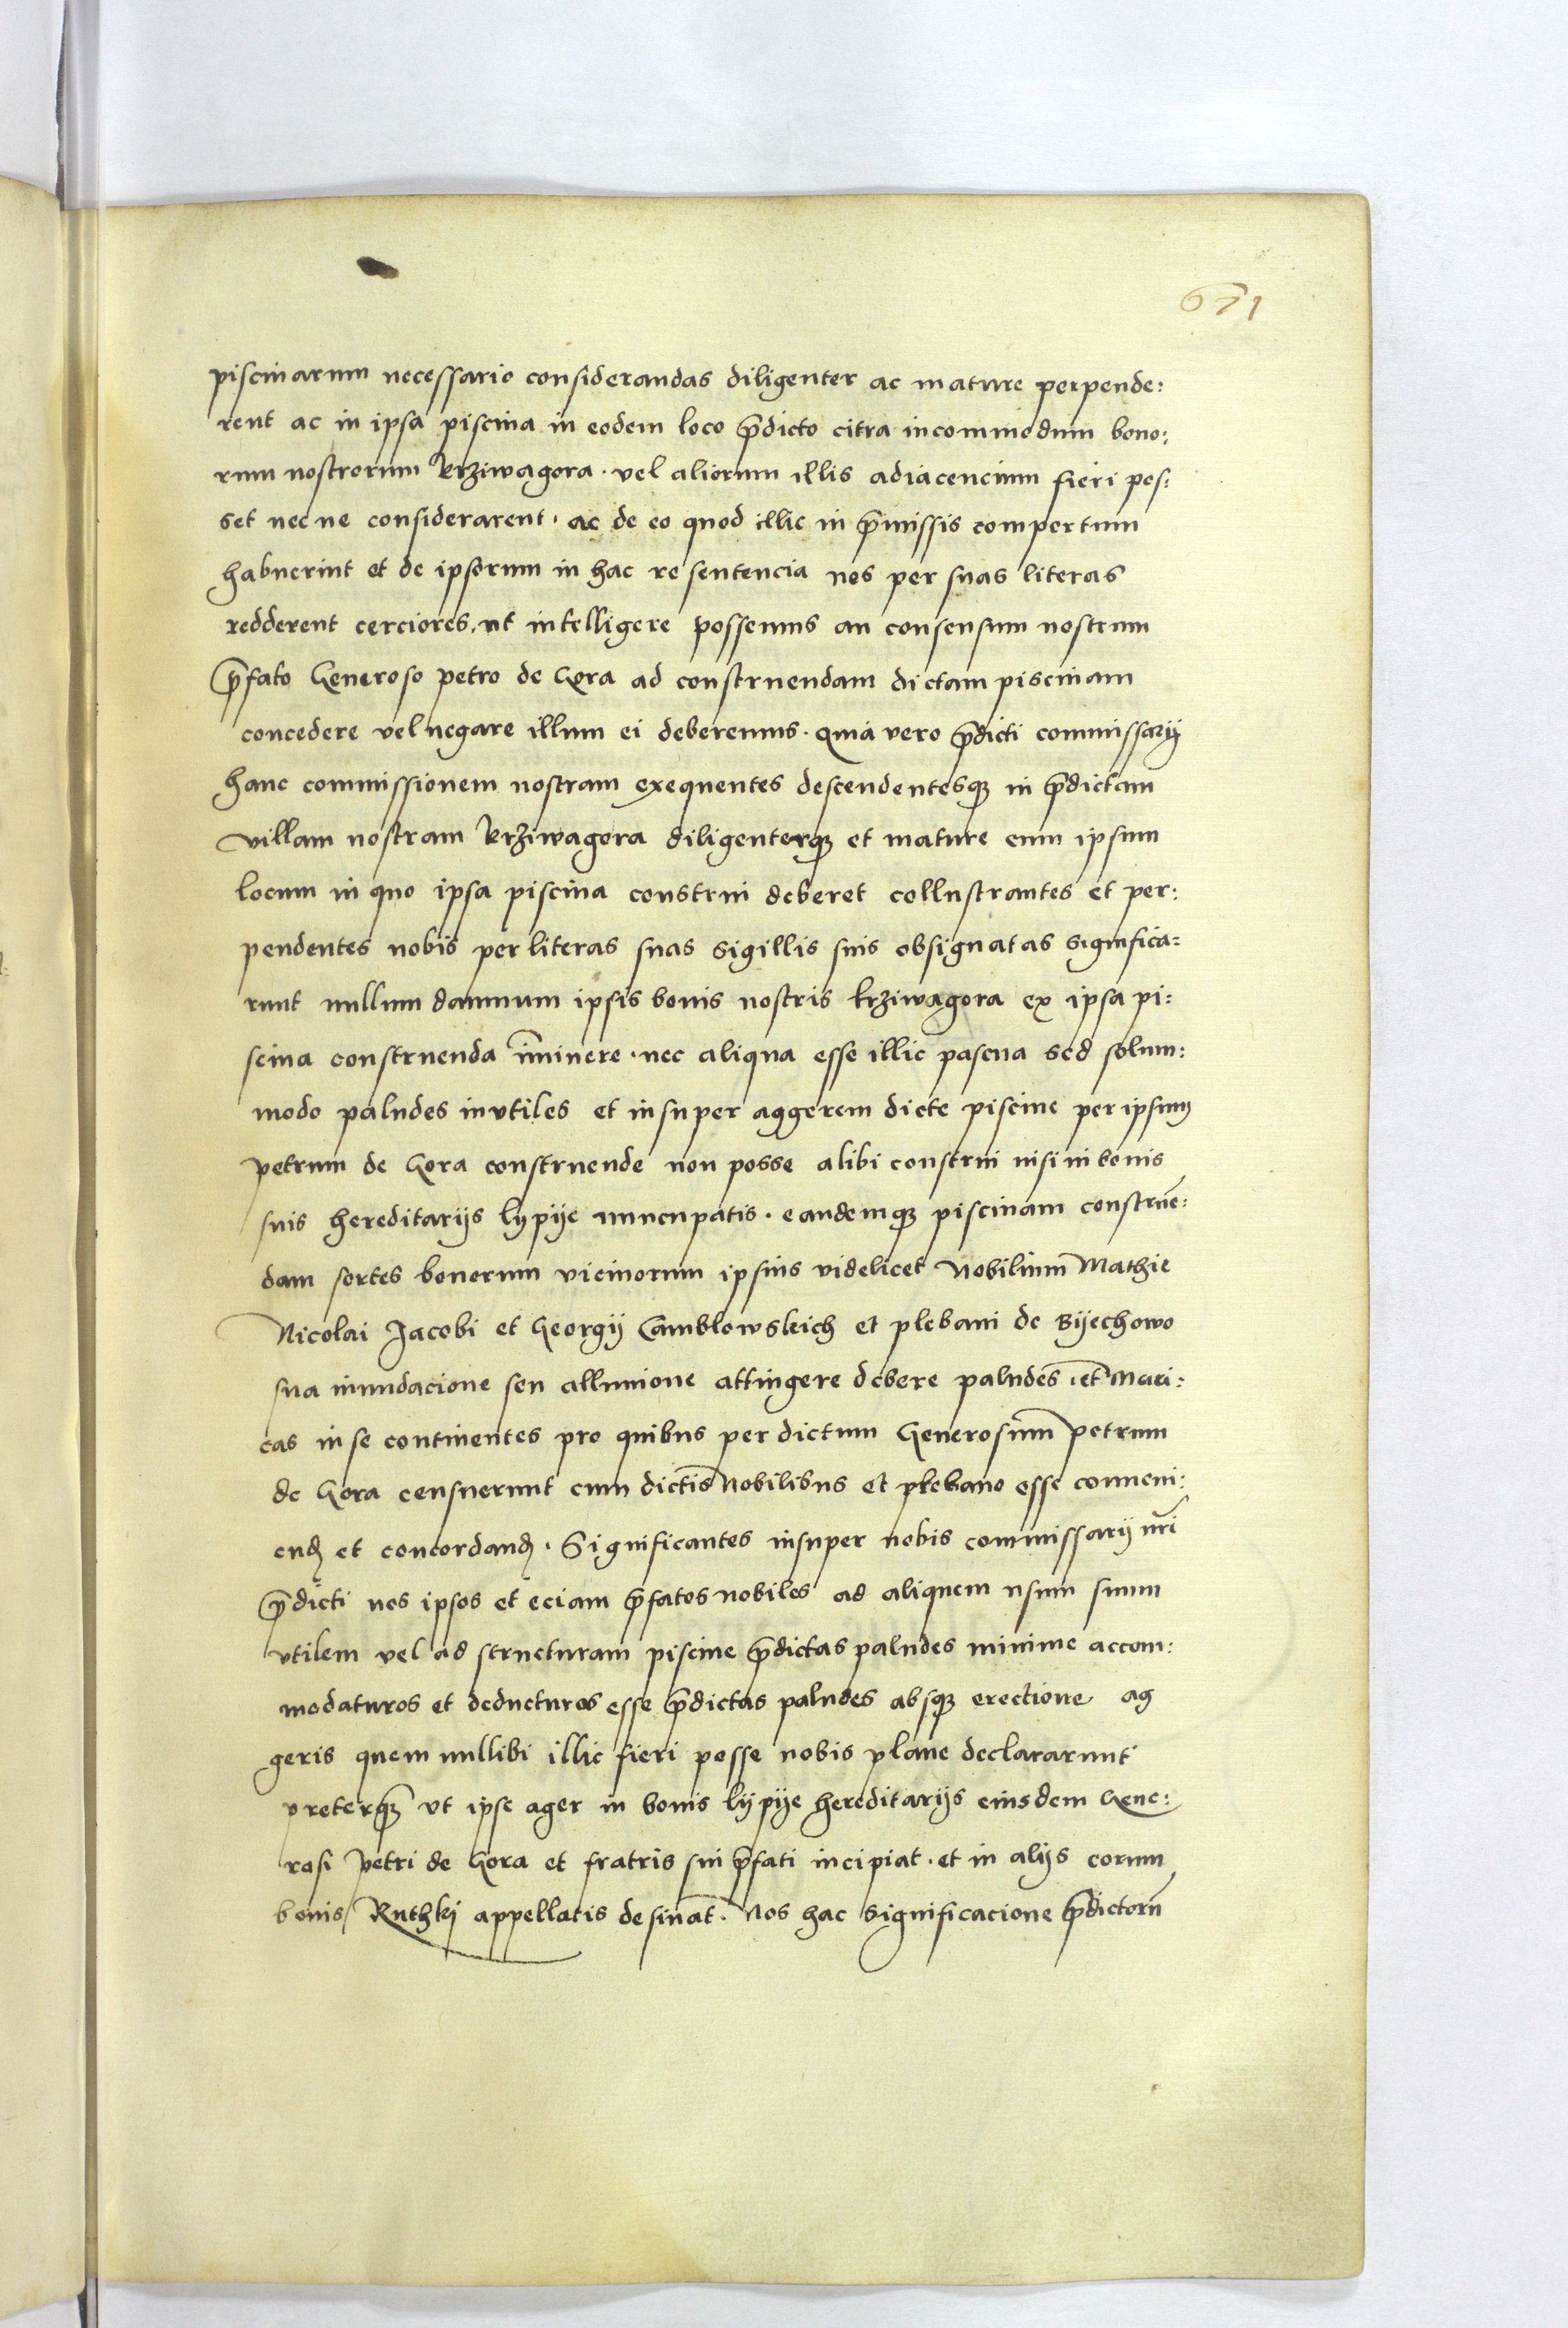 671
piscinarum necessario considerandas diligenter ac mature perpende:
rent ac in ipsa piscina in eodem loco p̄dicto citra incommodum bono:
rum nostrorum Krziwagora · vel aliorum illis adiacencium fieri pos:
set nec ne considerarent · ac de eo quod illic in p̄missis compertum
habuerint et de ipsorum in hac re sentencia nos per suas literas
redderent cerciores, ut intelligere possemus an consensum nostrum
p̄fato Generoso Petro de Gora ad construendam dictam piscinam
concedere vel negare illum ei deberemus · quia vero p̄dicti commissarij
hanc commissionem nostram exequentes descendentesqꝫ in p̄dictam
villam nostram Krziwagora diligenterqꝫ et mature eum ipsum
locum in quo ipsa piscina construi deberet collustrantes et per:
pendentes nobis per literas suas sigillis suis obsignatas significa:
runt nullum damnum ipsis bonis nostris krziwagora ex ipsa pi:
scina construenda im̄inere · nec aliqua esse illic pascua sed solum:
modo paludes invtiles et insuper aggerem dicte piscine per ipsum
petrum de Gora construende non posse alibi construi nisi in bonis
suis hereditarijs lypije nuncupatis · eandemqꝫ piscinam construē:
dam sortes bonorum vicinorum ipsius videlicet Nobilium Mathie
Nicolai Jacobi et Georgij Camblowskich et plebani de Bijechowo
sua inundacione seu alluuione attingere debere paludes et Meri:
cas in se continentes pro quibus per dictum Generosum petrum
de Gora censuerunt cum dictis Nobilibus et plebano esse conueni:
enđ et concordanđ · Significantes insuper nobis commissarij nr̄i
p̄dicti nos ipsos et eciam p̄fatos nobiles ad aliquem usum suum
vtilem vel ad structuram piscine p̄dictas paludes minime accom:
modaturos et deducturos esse p̄dictas paludes absqꝫ erectione ag
geris quem nullibi illic fieri posse nobis plane declararunt
preterqꝫ vt ipse ager in bonis lijpije hereditarijs eiusdem Gene:
rosi Petri de Gora et fratris sui p̄fati incipiat · et in alijs eorum
bonis Ruthki appellatis desinat · Nos hac significacione p̄dictorū